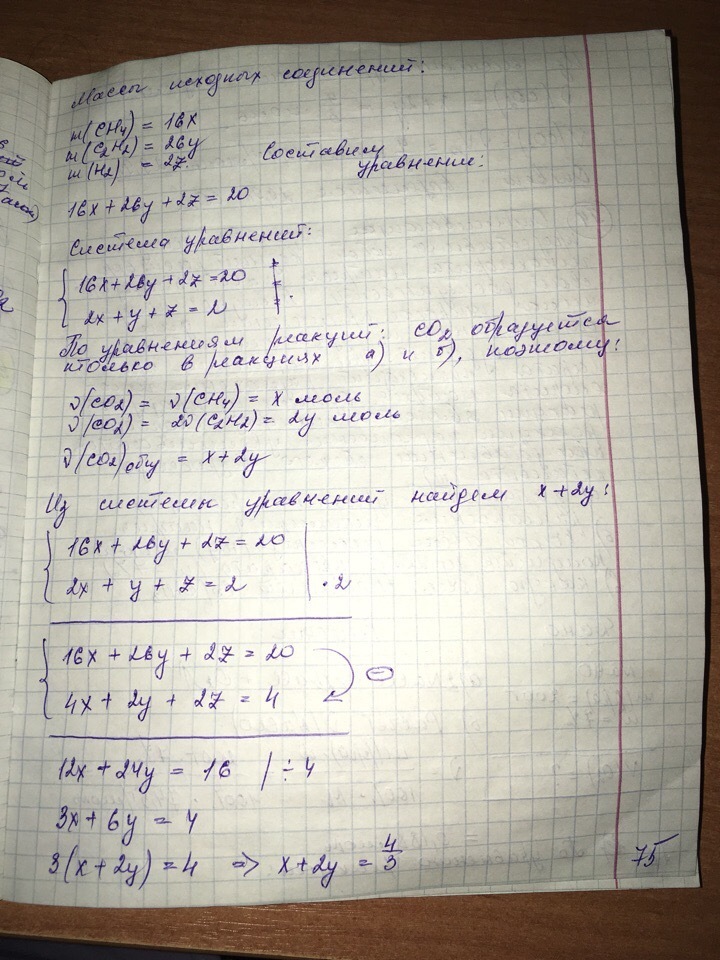 Массы исходных соединений:
m(CH4) = 16x
m(C2H2) = 26y
m(H2) = 2z. Составим
уравнение:
16x + 26y + 2z = 20
Система уравнений:
16x + 26y + 2z = 20
2x + y + z = 2
По уравнениям реакций: CO2 образуется
только в реакциях а) и б), поэтому:
ν(CO2) = ν(CH4) = x моль
ν(CO2) = 2ν(C2H2) = 2y моль
ν(CO2)общ = x + 2y
Из системы уравнений найдем x + 2y:
16x + 26y + 2z = 20
2x + y + z = 2 | · 2
16x + 26y + 2z = 20
4x + 2y + 2z = 4
12x + 24y = 16 | ÷ 4
3x + 6y = 4
3(x + 2y) = 4 => x + 2y = 4/3
75